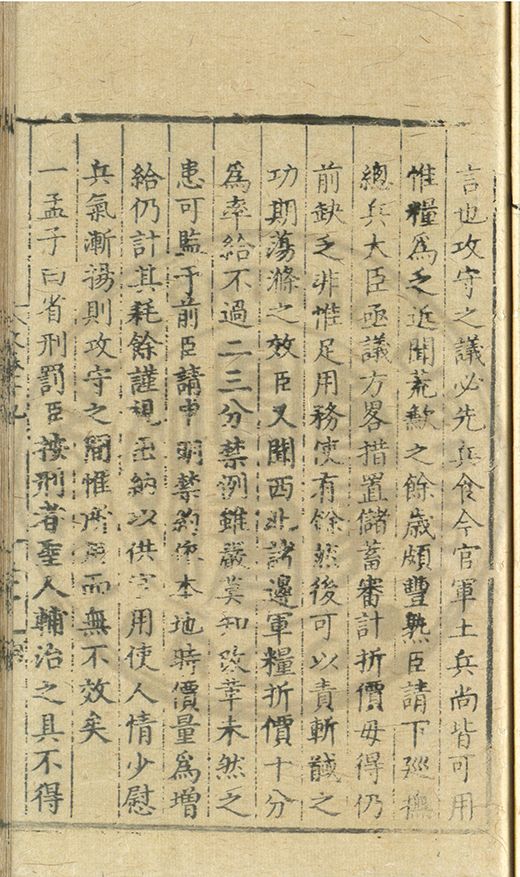 言也攻守之議必先兵食今官軍土兵尚皆可用
惟糧爲乏近聞荒歉之餘歲頗豐熟臣請下廵撫
總兵大臣亟議方畧措置儲蓄審計折價毋得仍
前缺乏非惟足用務使有餘然後可以責斬馘之
功期蕩滌之效臣又聞西北諸邊軍糧折價十分
爲率給不過二三分禁例雖嚴莫知改革未然之
患可監于前臣請申明禁約依本地時價量爲增
給仍計其耗餘謹視出納以供字用使人情少慰
兵氣漸揚則攻守之間惟所用而無不效矣
一孟子曰省刑罰臣按刑者聖人輔治之具不得